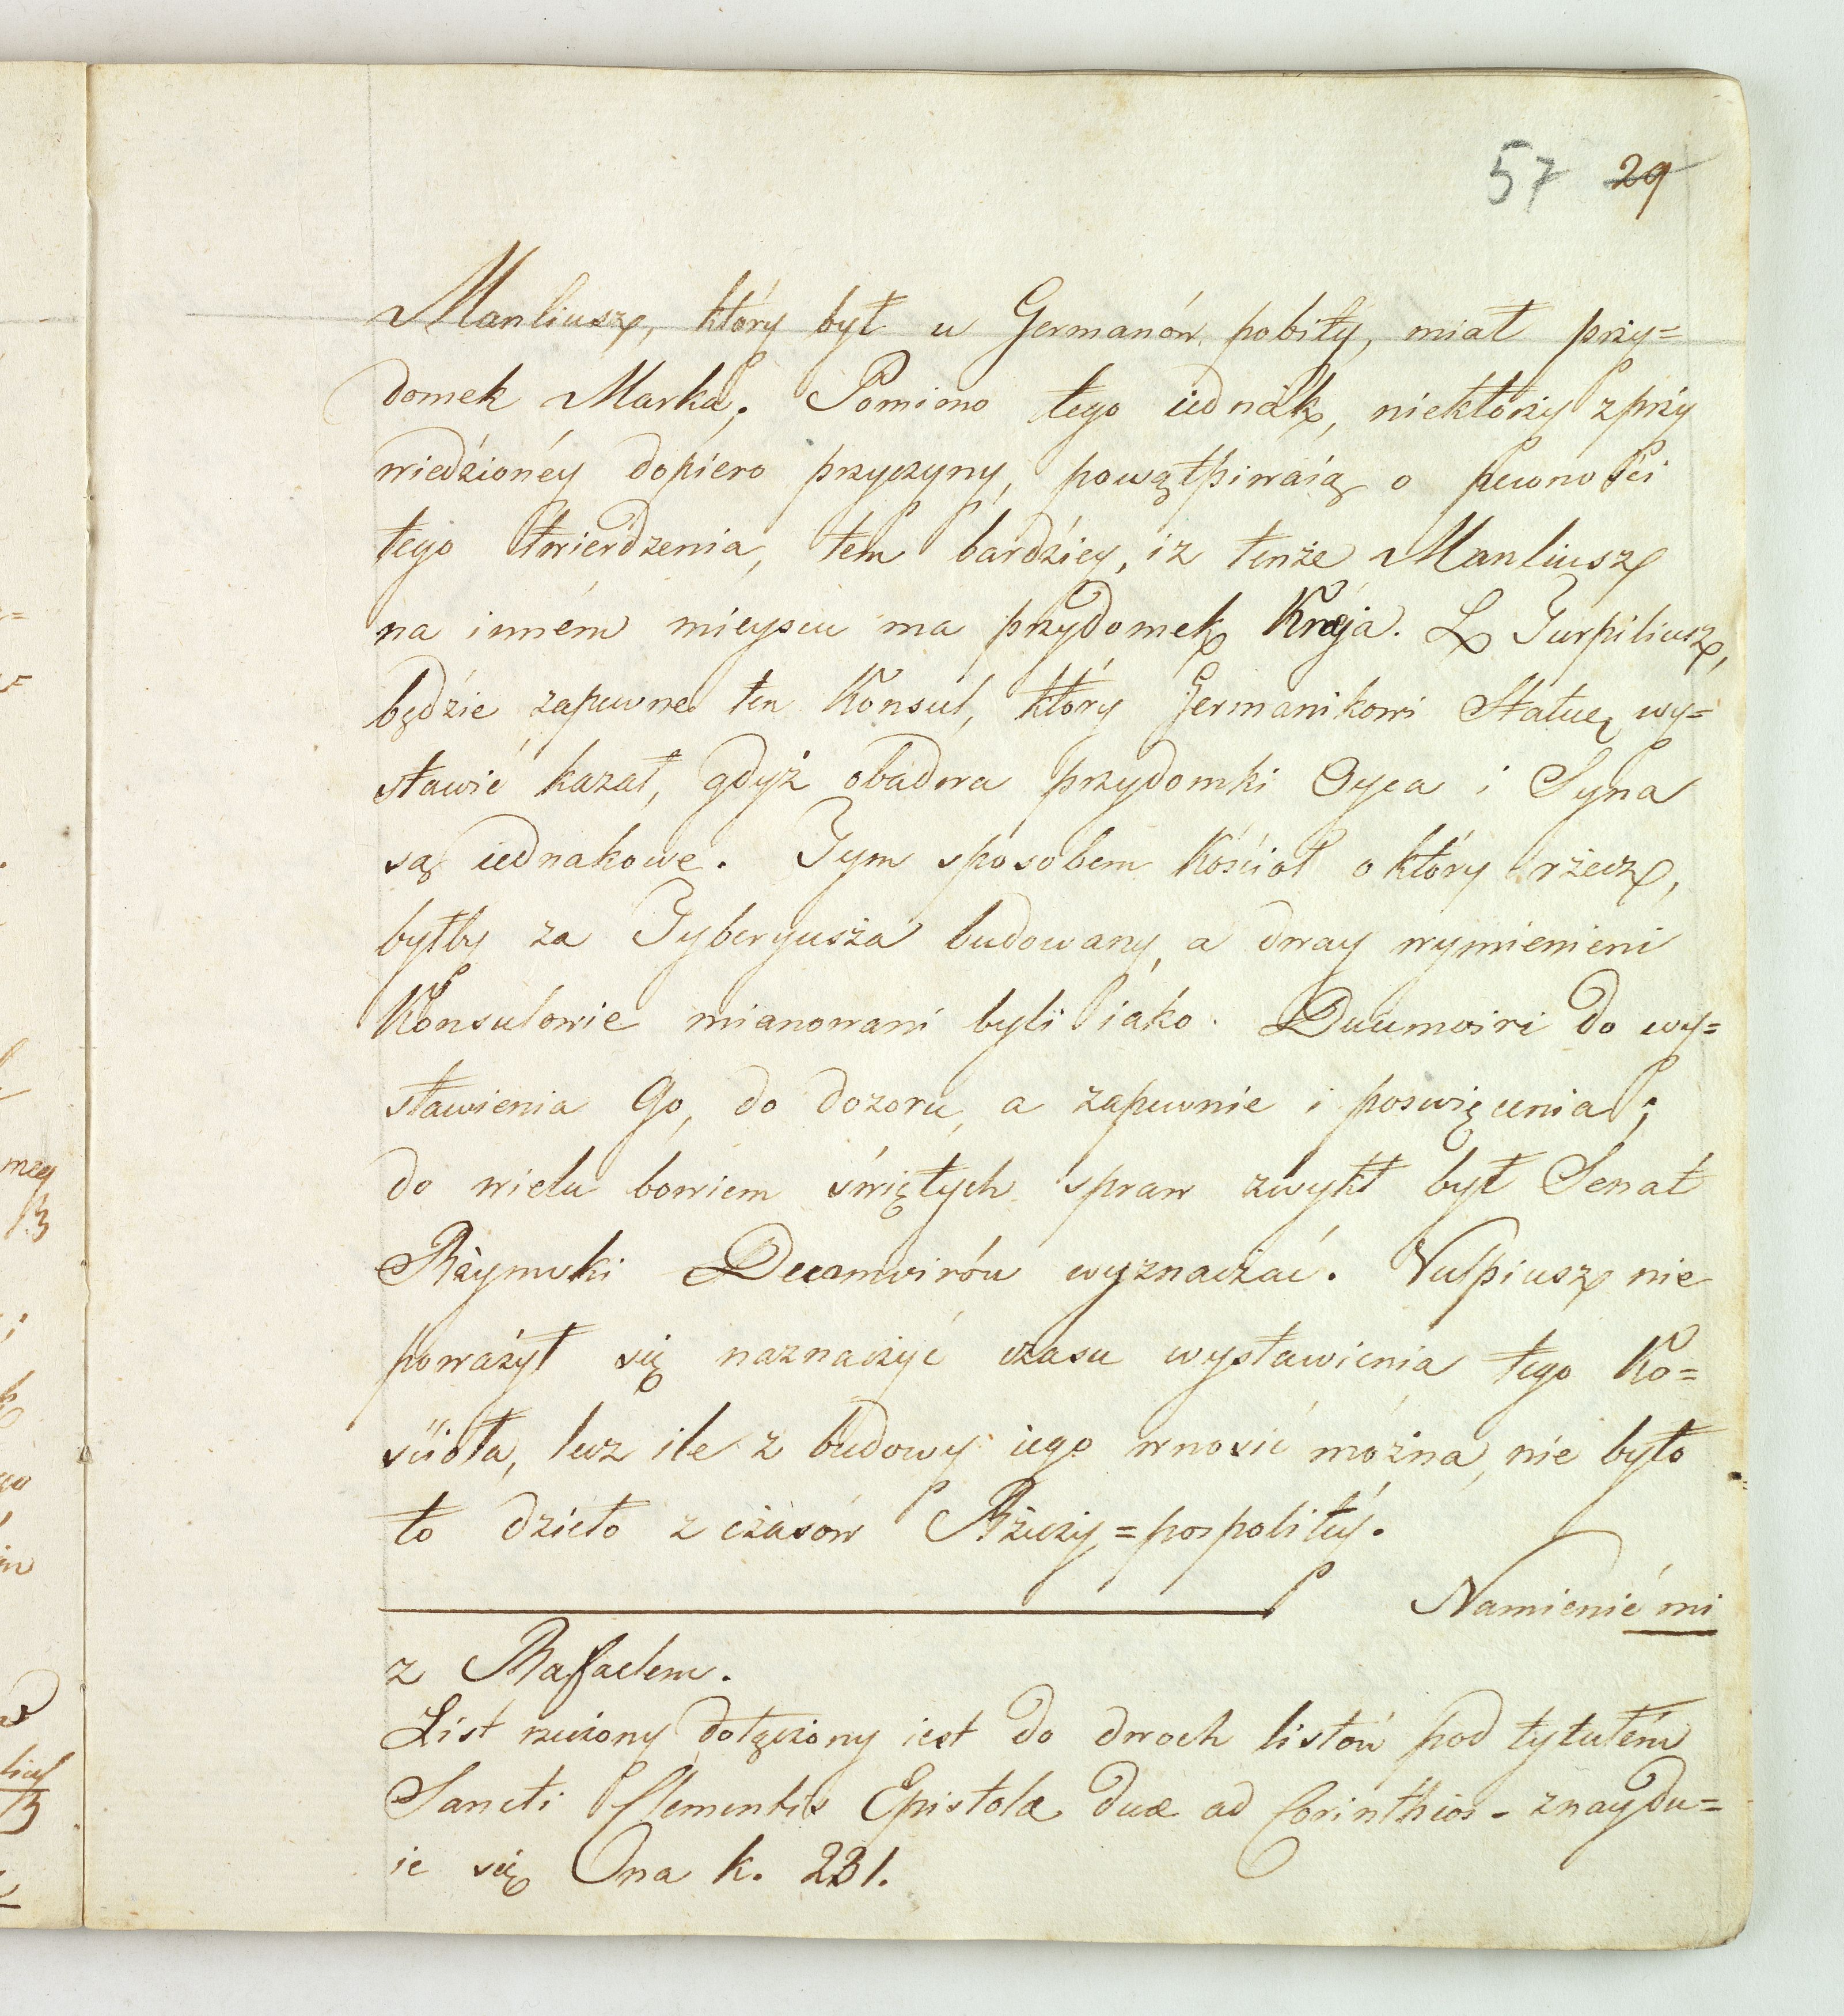 57 29
Manliusz, który był u Germanów pobity, miał przy=
domek Marka; Pomimo tego iednak, niektórzy z przy
wiedźionéy dopiero przyczyny, powątpiwaią o pewności
tego twierdzenia, tem bardźiey, iz tenże Manliusz
na inném mieyscu ma przydomek Knéja. L Turpiliusz,
będzie zapewne ten Konsul, który Germanikowi Statuę wy=
stawić kazał, gdyż obadwa przydomki Oyca i Syna
są iednakowe. Tym sposobem Kościoł o który rzecz,
byłby za Tyberyusza budowany, a dway wymienieni
Konsulowie mianowani byli iako Duumviri do wy=
stawienia Go, do dozoru, a zapewnie i poswięcenia;
do wielu bowiem świętych spraw zwykł był Senat
Rzymski Decemvirów wyznaczać. Vulpiusz nie
poważył się naznaczyć czasu wystawienia tego Ko=
sciioła, lecz ile z budowy iego wnosić można, nie było
to dzieło z czasów Rzeczy=pospolitey.
Namienié mi
z Raffaelem.
List rzeczony dołączony iest do dwoch listów pod tytułém
Sancti Clementis Epistolæ duæ ad Corinthios - znaydu=
ie się Ona k. 231.